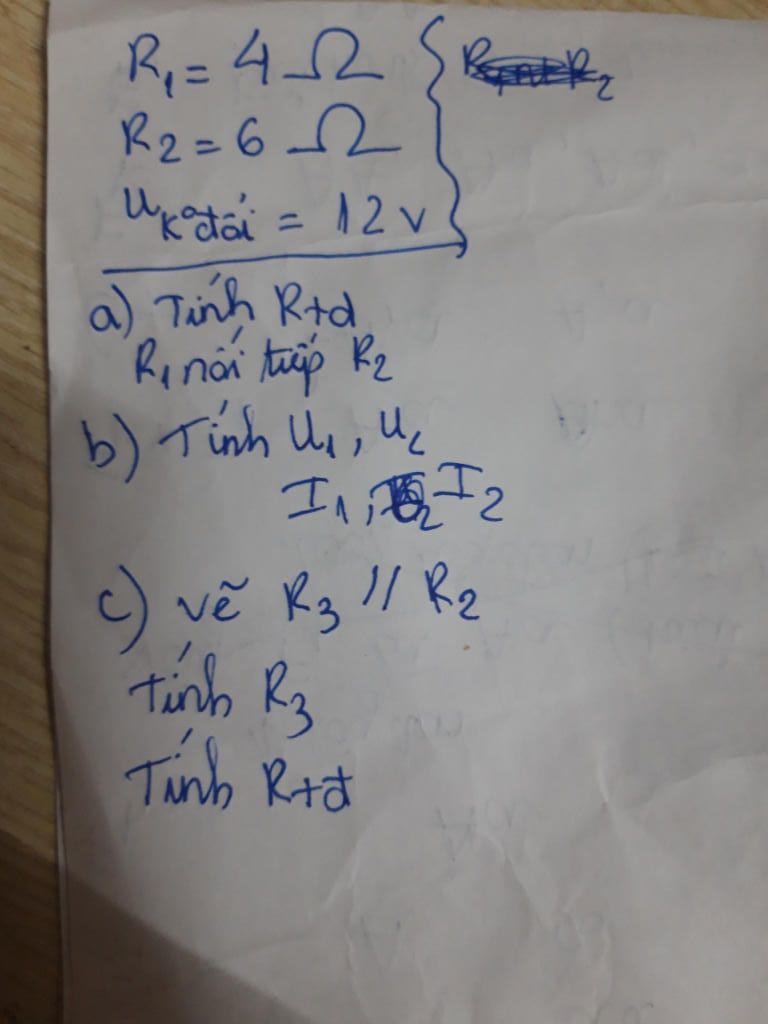 R₁ = 4 Ω
R₂ = 6 Ω
U k° đổi = 12 v
a) Tính Rtđ
R₁ nối tiếp R₂
b) Tính U₁, U₂
I₁, I₂
c) vẽ R₃ // R₂
Tính R₃
Tính Rtđ